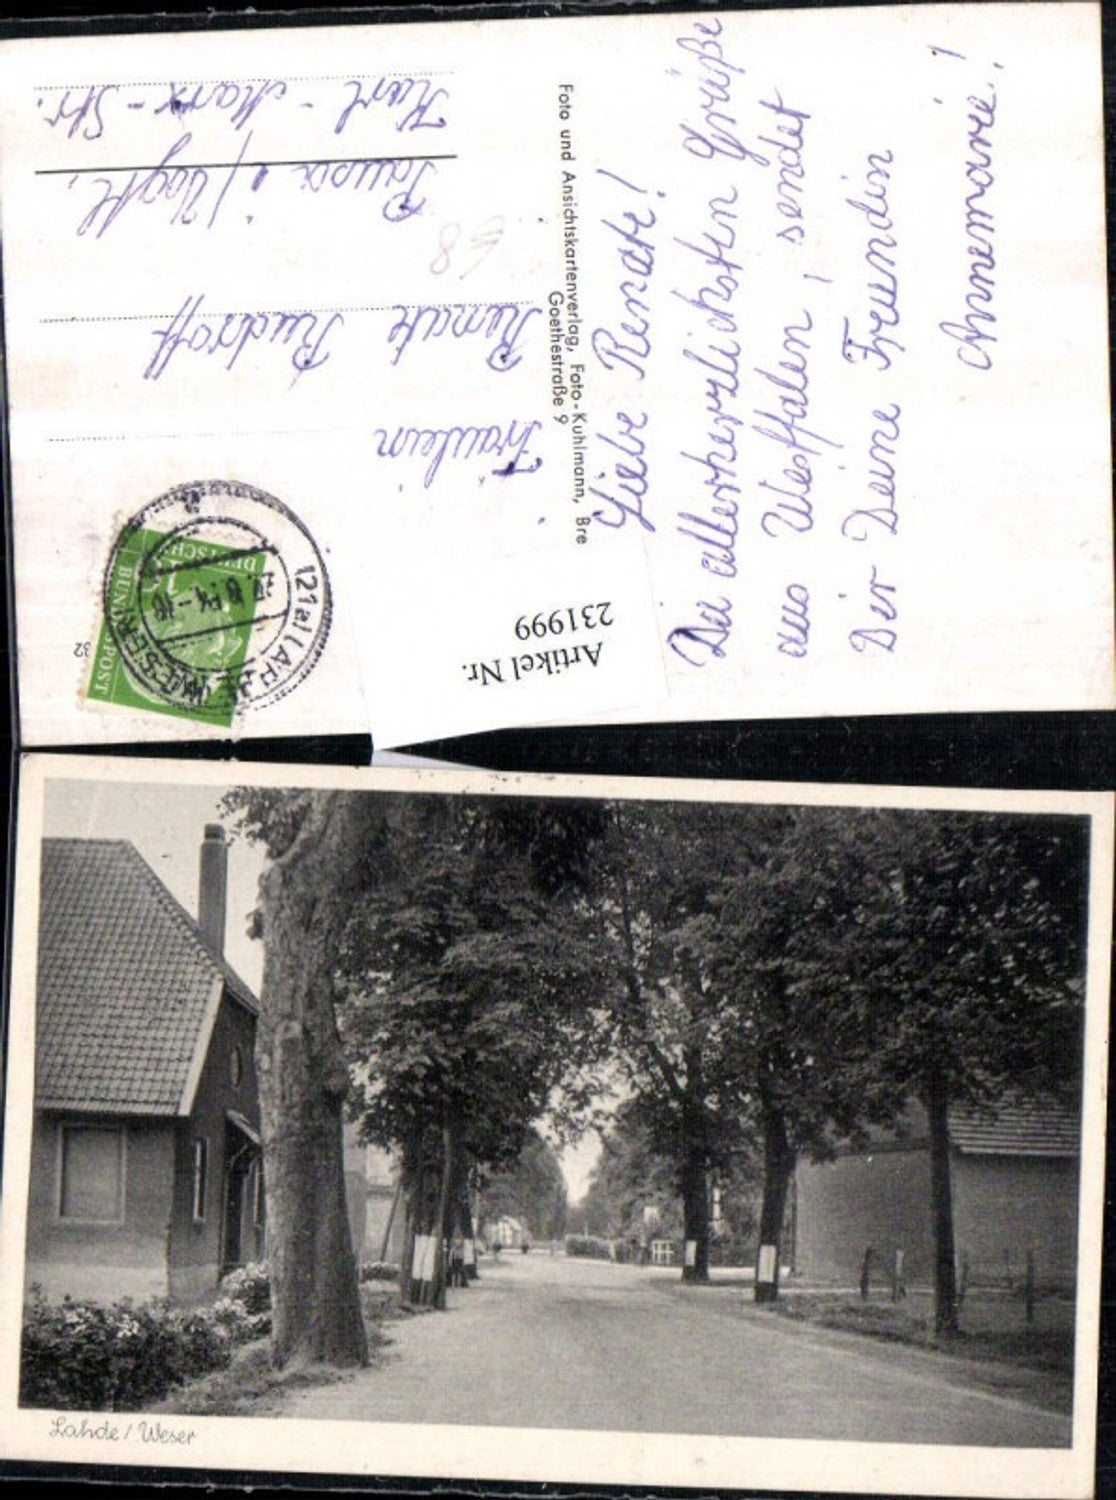 Liebe Renate!
Die allerherzlichsten Grüße
aus Westfalen, sendet
Dir Deine Freundin
Annemarie!
Foto und Ansichtskartenverlag, Foto-Kuhlmann, Bre
Goethestraße 9
Fräulein
Renate Rudroff
Pausa i/Vogtl.
Karl-Marx-Str.
68
DEUTSCHE
BUNDESPOST
(21a) LAHDE (WESER)
-16
32
Artikel Nr.
231999
Lahde / Weser